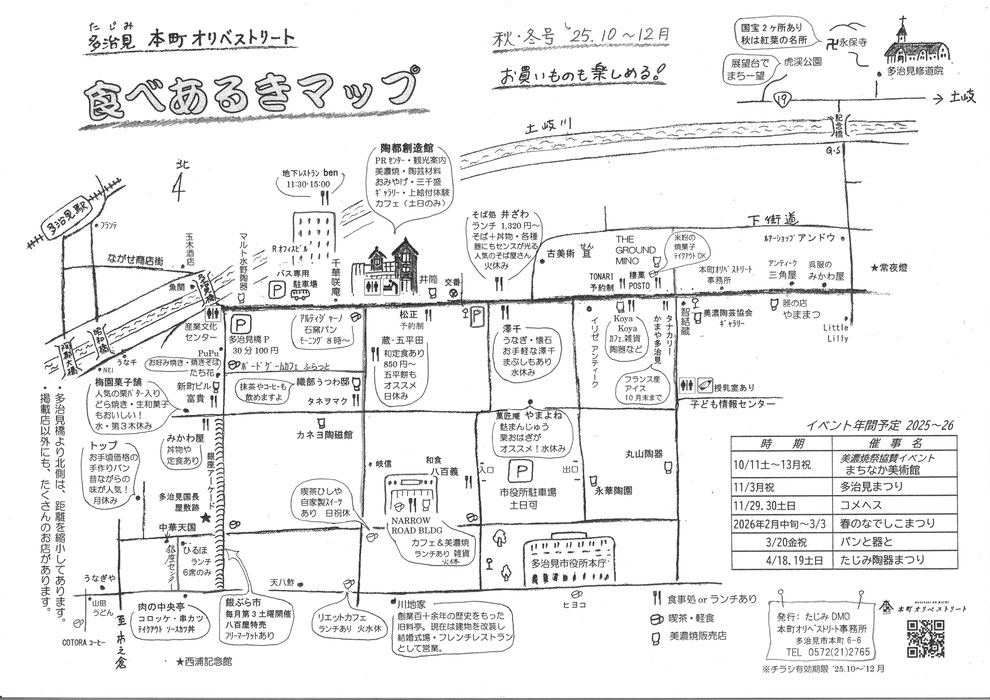 たじみ
多治見 本町オリベストリート
食べあるきマップ
秋・冬号 '25.10～12月
お買いものも楽しめる!
国宝2ヶ所あり
秋は紅葉の名所
卍永保寺
展望台で
まち一望
虎渓公園
多治見修道院
19
→土岐
記念橋
G・S
土岐川
北
4
多治見駅
フランテ
ながせ商店街
玉木酒店
魚関
マルト水野陶器
地下レストラン ben
11:30-15:00
Rオフィスビル
バス専用
P 駐車場
千華咲庵
陶都創造館
PRセンター・観光案内
美濃焼・陶芸材料
おみやげ・三千盛
ギャラリー・上絵付体験
カフェ(土日のみ)
井筒
交番
そば処 井ざわ
ランチ 1,320円～
そば+丼物・各種
器にもセンスが光る
人気のそば屋さん
火休み
下街道
古美術 亘
せん
THE
GROUND
MINO
TONARI
予約制
棲菓
POSTO
米粉の
焼菓子
テイクアウトOK
本町オリベストリート
事務所
ルアーショップ アンドウ
アンティーク
三角屋
呉服の
みかわ屋
★常夜燈
昭和橋
産業文化
センター
うな千
NEI
PuPu
お好み焼き・焼きそば
たち花
新町ビル
富貴
P
多治見橋P
30分100円
アルティジャーノ
石窯パン
モーニング 8時～
ボードゲームカフェ ふらっと
抹茶やコーヒーも
飲めますよ
織部うつわ邸
タネヲマク
カネヨ陶磁館
松正
予約制
蔵・五平田
和定食あり
850円～
五平餅も
オススメ
日休み
P
澤千
うなぎ・懐石
お手軽な澤千
まぶしもあり
水休み
イリゼ アンティーク
Koya
Koya
カフェ,雑貨
陶器など
タナカリー
かまや多治見
フランス産
アイス
10月末まで
智結蔵
美濃陶芸協会
ギャラリー
器の店
やままつ
Little
Lilly
授乳室あり
子ども情報センター
梅園菓子舗
人気の栗バター入り
どら焼き・生和菓子
もおいしい!
水・第3木休み
トップ
お手頃価格の
手作りパン
昔ながらの
味が人気!
月休み
みかわ屋
丼物や
定食あり
銀座アーケード
多治見国長
屋敷跡
★
中華天国
銀座センター
ひるほ
ランチ
6席のみ
岐信
和食
八百義
喫茶ひしや
自家製スイーツ
あり 日祝休
NARROW
ROAD BLDG
カフェ&美濃焼
ランチあり 雑貨
火休
菓匠庵 やまよね
麩まんじゅう
栗おはぎが
オススメ!水休み
入口
P
出口
市役所駐車場
土日可
永華陶園
丸山陶器
多治見市役所本庁
・多治見橋より北側は、距離を縮小してあります。
・掲載店以外にも、たくさんのお店があります。
うなぎや
山田
うどん
COTORA コーヒー
至市之倉
肉の中央亭
コロッケ・串カツ
テイクアウト ソースカツ丼
★西浦記念館
銀ぶら市
毎月第3土曜開催
八百屋特売
フリーマーケットあり
天八鮓
リエットカフェ
ランチあり 火水休
川地家
創業百十余年の歴史をもった
旧料亭。現在は建物を改装し
結婚式場・フレンチレストラン
として営業。
ヒヨコ
イベント年間予定 2025～26
時 期 催 事 名
10/11土～13月祝 美濃焼祭協賛イベント
まちなか美術館
11/3月祝 多治見まつり
11/29.30土日 コメヘス
2026年2月中旬～3/3 春のなでしこまつり
3/20金祝 パンと器と
4/18.19土日 たじみ陶器まつり
食事処 or ランチあり
喫茶・軽食
美濃焼販売店
発行:たじみDMO
本町オリベストリート事務所
多治見市本町6-6
TEL 0572(21)2765
※チラシ有効期限 '25.10～'12月
本町オリベストリート